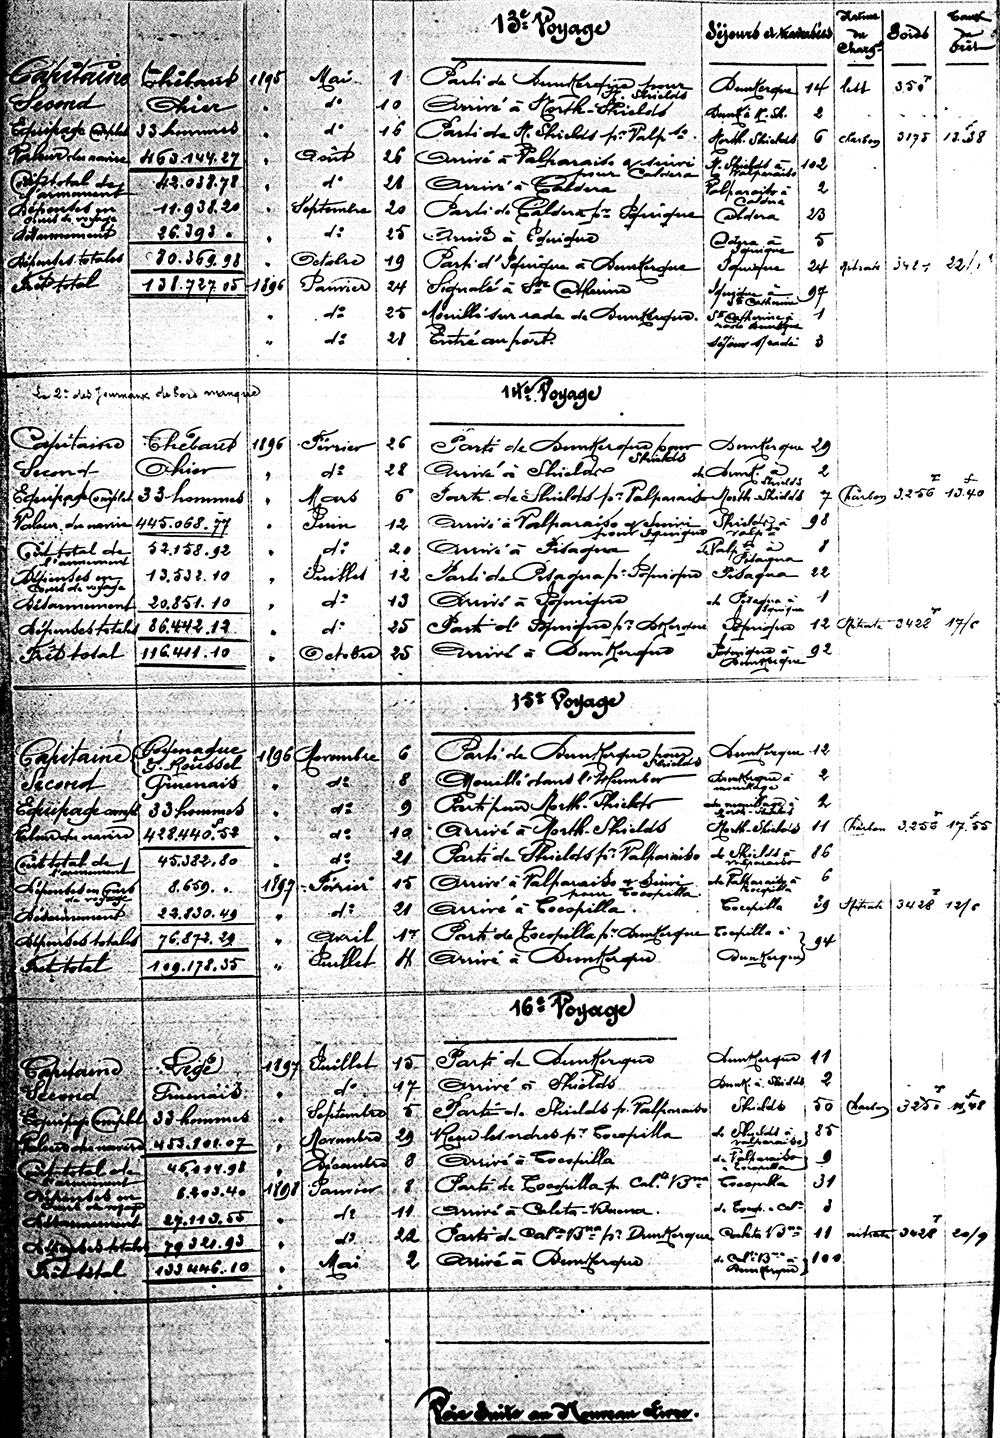 13e Voyage Séjours et traversées Nature du Charg.t Poids Taux du fret
Capitaine Thébaud 1895 Mai 1 Parti de Dunkerque pour N. Shields Dunkerque 14 lest 350T
Second Ohier " do 10 Arrivé à North-Shields Dunk à N. Sh. 2
Equipage Complet 33 hommes " do 16 Parti de N. Shields pr Valp. North. Shields 6 charbon 3175
Valeur du navire 463.144.27 " Août 26 Arrivé à Valparaiso & suivi pour Caldera N. Shields à Valparaiso 102
Coût total de l'armement 42.038.78 " do 28 Arrivé à Caldera Valparaiso à Caldera 2
Dépenses en cours de voyage 11.938.20 " Septembre 20 Parti de Caldera pr Iquique Caldera 23
désarmement 26.393 " do 25 Arrivé à Iquique à Iquique 5
Dépenses totales 80.369.98 " Octobre 19 Parti d'Iquique à Dunkerque Iquique 24 Nitrate
Frêt total 138.727.05 1896 Janvier 24 Signalé à Ste Catherine Iquique à Ste Catherine 97
" do 25 Mouillé sur rade de Dunkerque. Ste Catherine à rade Dunkerque 1
" do 28 Entré au port. Séjour s/rade 3
Le 2e des journaux de bord manque
14e Voyage
Capitaine Thébaud 1896 Février 26 Parti de Dunkerque pour Shields Dunkerque 29
Second Ohier " do 28 Arrivé à Shields de Dunk. à Shields 2
Equipage Complet 33 hommes " Mars 6 Parti de Shields pr Valparaiso North. Shields 7 Charbon 3.256T 13.40
Valeur du navire 445.068.77 " Juin 12 Arrivé à Valparaiso & suivi pour Iquique Shields à Valp. 98
Coût total de l'armement 52.158.92 " do 20 Arrivé à Pisagua de Valp. à Pisagua 8
Dépenses en cours de voyage 13.532.10 " Juillet 12 Parti de Pisagua pr Iquique Pisagua 22
Désarmement 20.851.10 " do 13 Arrivé à Iquique de Pisagua à Iquique 1
Dépenses totales 86.442.12 " do 25 Parti d'Iquique pr Dunkerque Iquique 12 Nitrate 3428T 17/6
Frêt total 116.411.10 " Octobre 25 Arrivé à Dunkerque Iquique à Dunkerque 92
15e Voyage
Capitaine F. Roussel 1896 Novembre 6 Parti de Dunkerque pour Shields Dunkerque 12
Second Gruenais " do 8 Mouillé dans l'Humber Dunkerque à mouillage 2
Equipage compl. 33 hommes " do 9 Parti pour North. Shields de mouillage à North. Shields 2
Valeur du navire 428.440.52 " do 10 Arrivé à North. Shields North. Shields 11 Charbon 3.256T 17.55
Coût total de l'armement 45.382.80 " do 21 Parti de Shields pr Valparaiso de Shields à Valparaiso 86
Dépenses en cours de voyage 8.659. 1897 Février 15 Arrivé à Valparaiso & suivi pour Tocopilla de Valparaiso à Tocopilla 6
Désarmement 22.830.49 " do 21 Arrivé à Tocopilla. Tocopilla 39 Nitrate 3428T 12/6
Dépenses totales 76.872.29 " Avril 1er Parti de Tocopilla pr Dunkerque Tocopilla à
Frêt total 109.178.35 " Juillet 4 Arrivé à Dunkerque Dunkerque 94
16e Voyage
Capitaine Légé 1897 Juillet 15 Parti de Dunkerque Dunkerque 11
Second Gruenais " do 17 Arrivé à Shields Dunk. à Shields 2
Equipage Complet 33 hommes " Septembre 5 Parti de Shields pr Valparaiso Shields 50 Charbon 3250T
Valeur du navire 453.201.07 " Novembre 29 Reçu les ordres pr Tocopilla de Shields à Valparaiso 85
Coût total de l'armement 46.014.98 " Décembre 8 Arrivé à Tocopilla de Valparaiso à Tocopilla 9
Dépenses en cours de voyage 6.203.40 1898 Janvier 8 Parti de Tocopilla pr Cal.ta B.na Tocopilla 31
Désarmement 27.113.55 " do 11 Arrivé à Caleta-Buena. de Tocop. à Cal.ta 3
Dépenses totales 79.321.93 " do 22 Parti de Cal.ta B.na pr Dunkerque Caleta B.na 11 nitrate 3428T 20/9
Frêt total 133.446.10 " Mai 2 Arrivé à Dunkerque de Cal.ta B.na à Dunkerque 100
Voir Suite au Nouveau Livre.